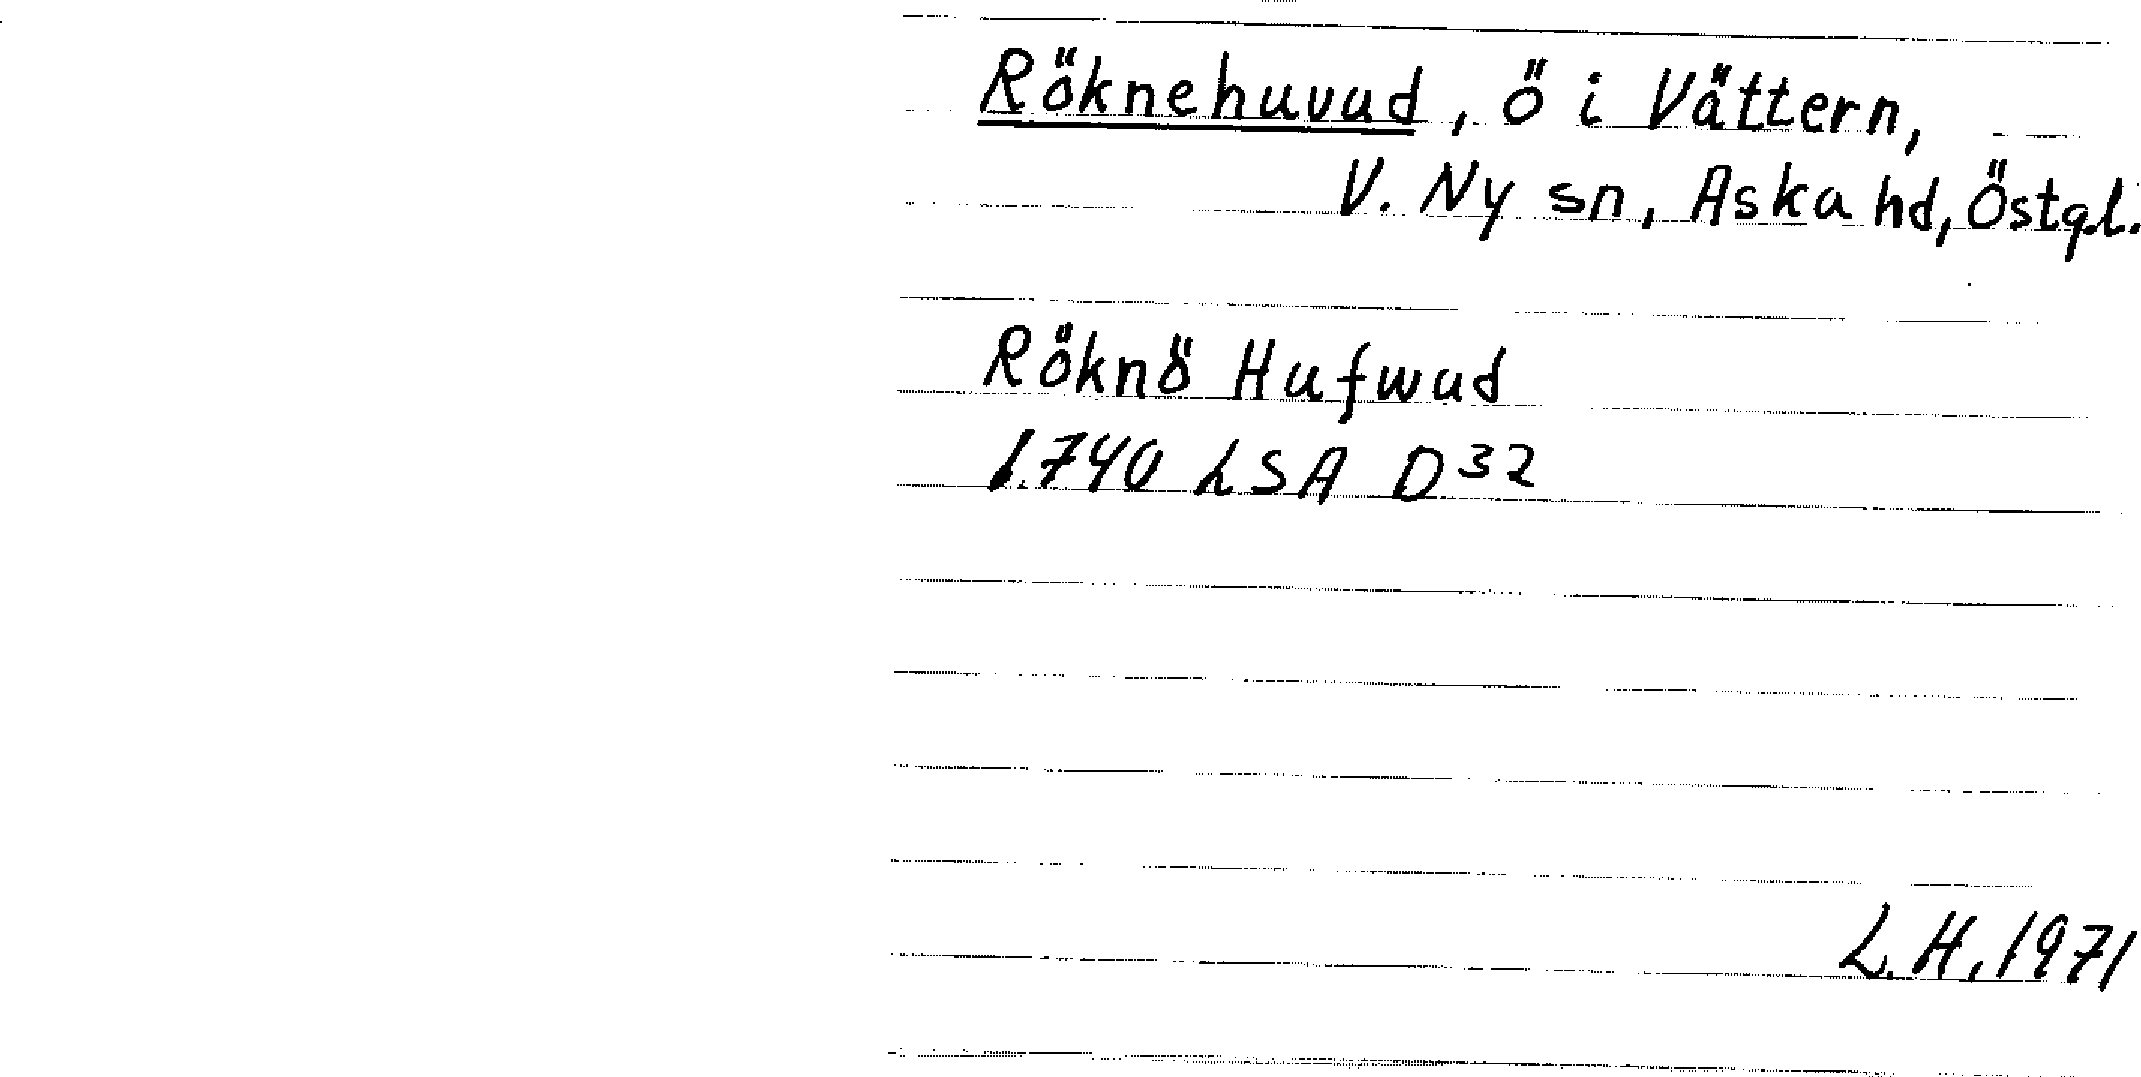 Röknehuvud, ö i Vättern,
V. Ny sn, Aska hd, Östgl.
Röknö Hufwud
1740 LSA D32
L.H. 1971